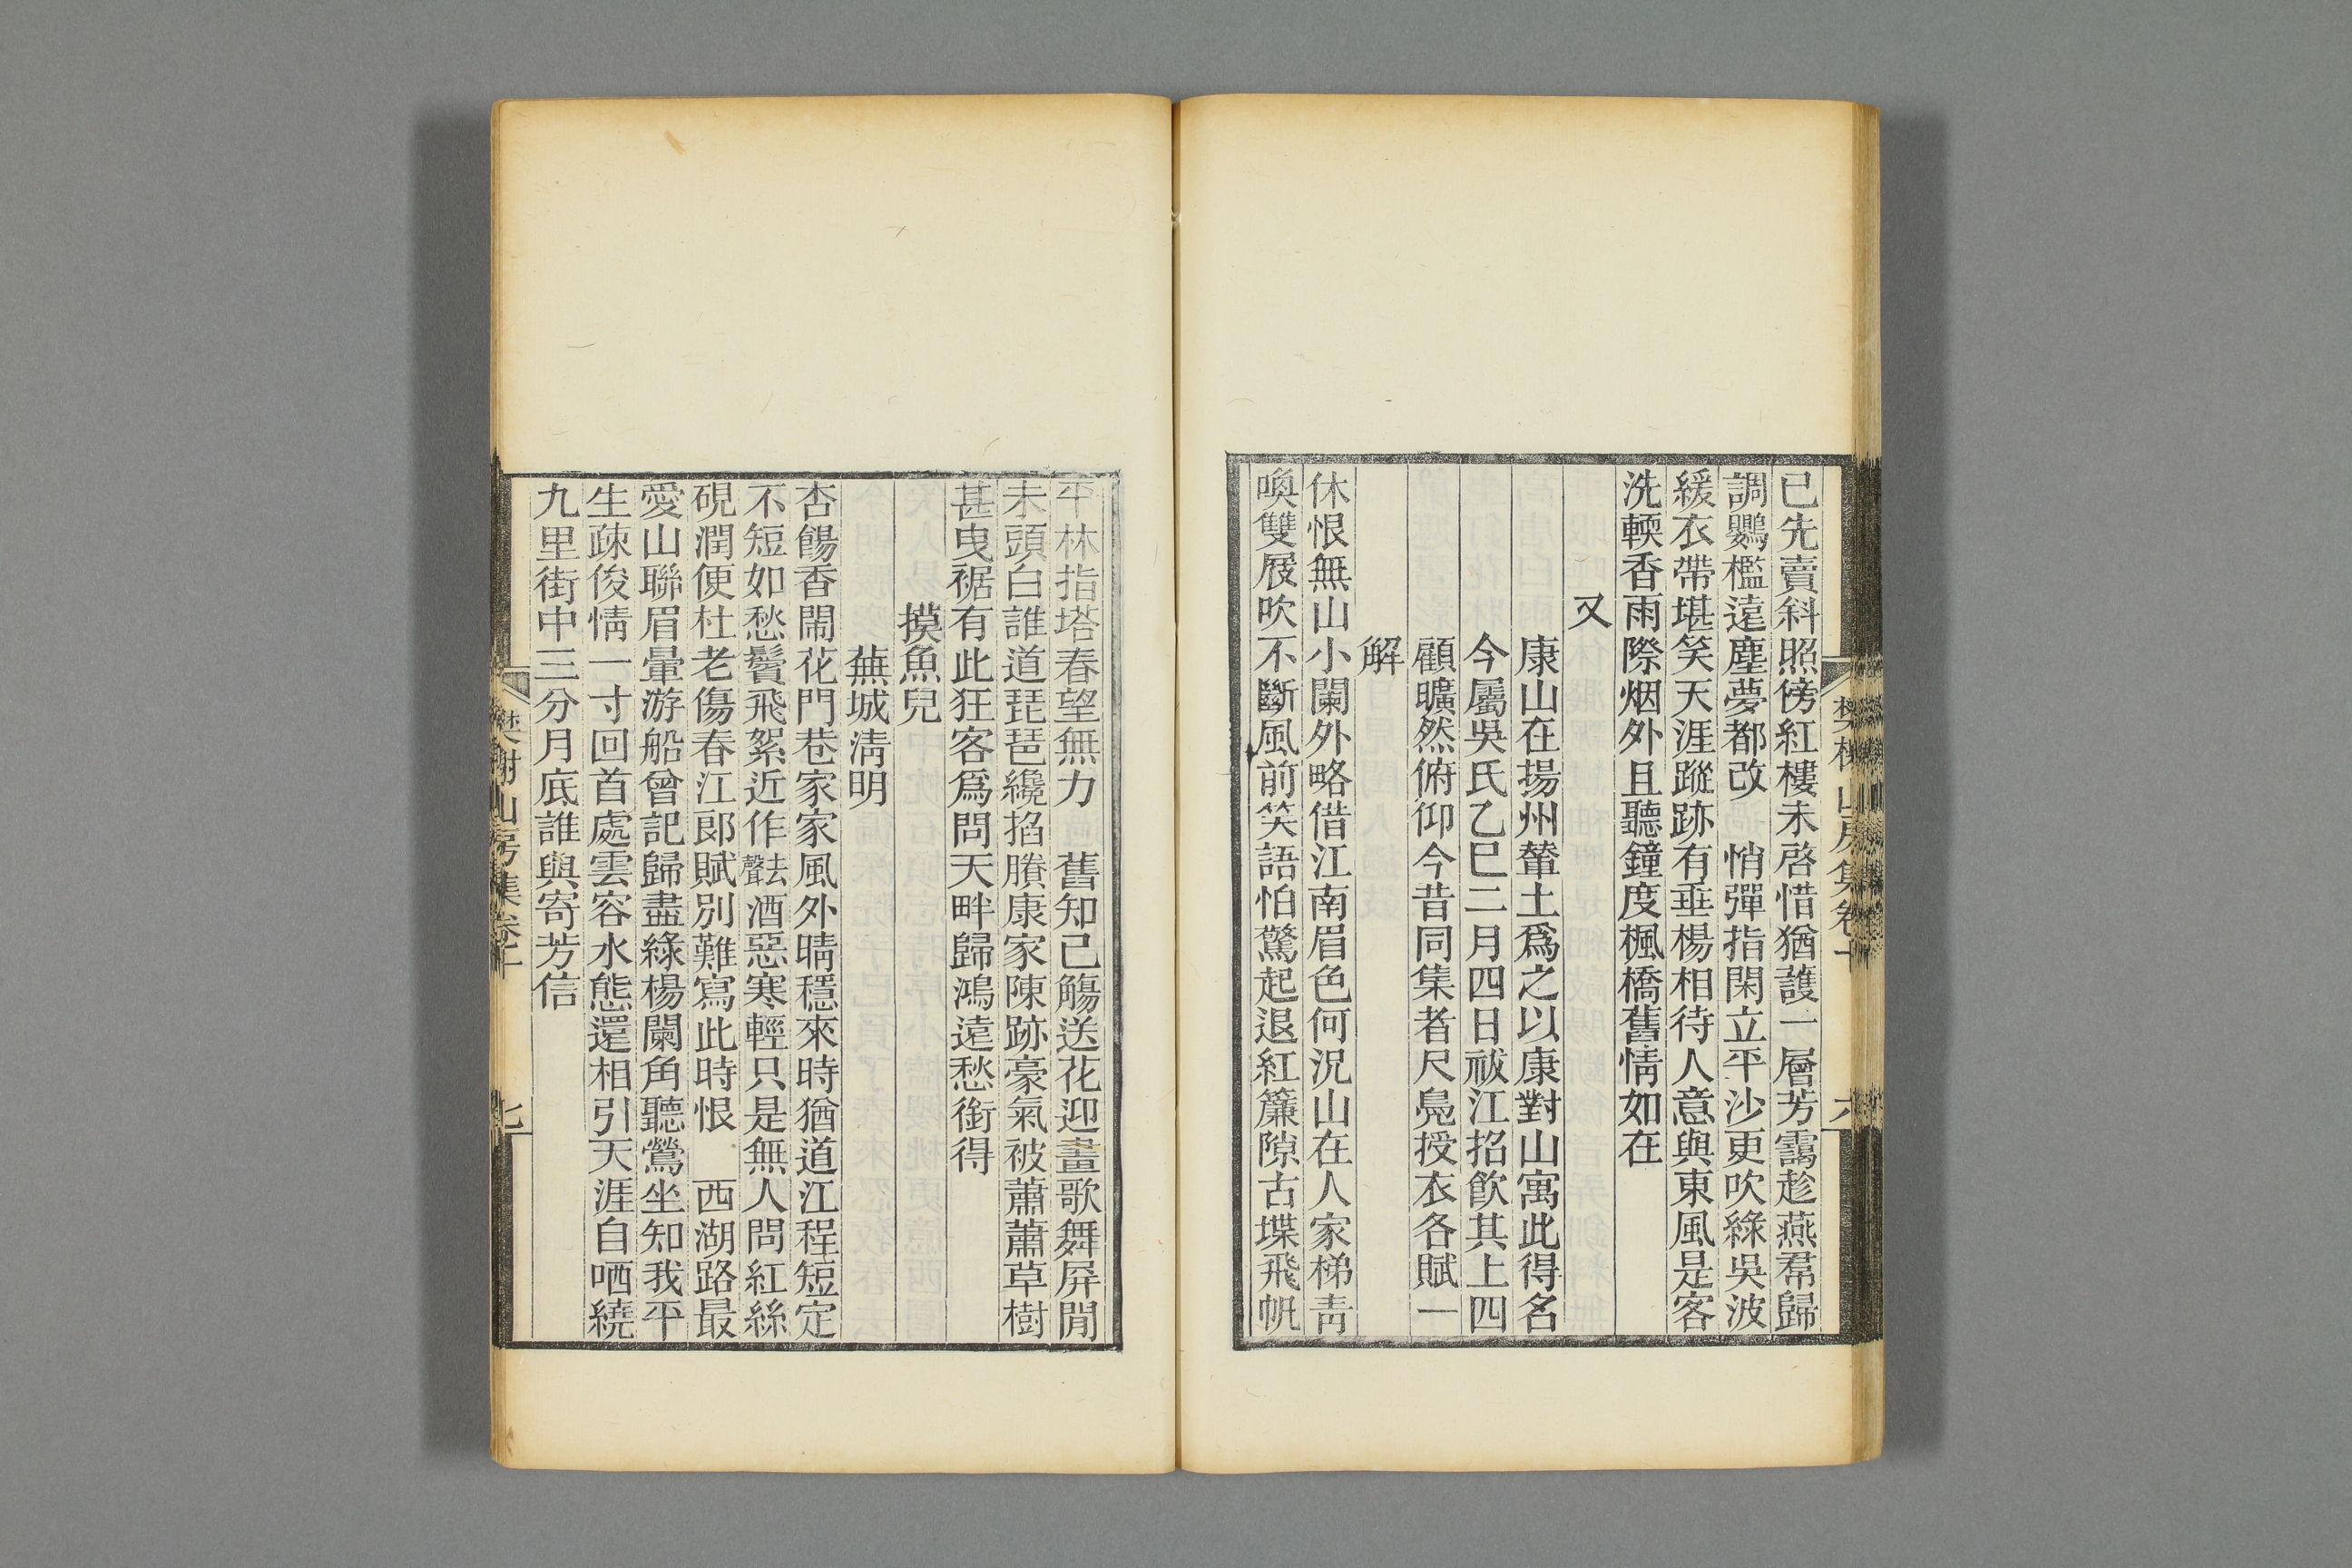 已先賣斜照傍紅樓未啓惜猶護一層芳靄趁燕羣歸
調鸚檻遠塵夢都改　悄彈指閑立平沙更吹綠吳波
緩衣帶堪笑天涯蹤跡有垂楊相待人意與東風是客
洗輭香雨際烟外且聽鐘度楓橋舊情如在
又
康山在揚州輦土爲之以康對山寓此得名
今屬吳氏乙巳二月四日祓江招飮其上四
顧曠然俯仰今昔同集者尺鳧授衣各賦一
解
休恨無山小闌外略借江南眉色何況山在人家梯靑
喚雙屐吹不斷風前笑語怕驚起退紅簾隙古堞飛帆
平林指塔春望無力　舊知己觴送花迎畫歌舞屏閒
未頭白誰道琵琶纔掐賸康家陳跡豪氣被蕭蕭草樹
甚曳裾有此狂客爲問天畔歸鴻遠愁銜得
摸魚兒
蕪城淸明
杏餳香閙花門巷家家風外晴穩來時猶道江程短定
不短如愁鬢飛絮近作去聲酒惡寒輕只是無人問紅絲
硯潤便杜老傷春江郎賦別難寫此時恨　西湖路最
愛山聯眉暈游船曾記歸盡綠楊闌角聽鶯坐知我平
生疎俊情一寸回首處雲容水態還相引天涯自哂繞
九里街中三分月底誰與寄芳信
樊榭山房集卷十
七
樊榭山房集卷十
六